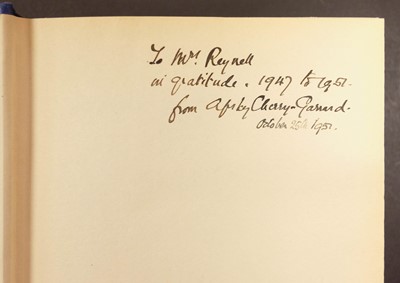 To Mrs Reynell
in gratitude. 1947 to 1951.
from Apsley Cherry-Garrard.
October 25th 1951.